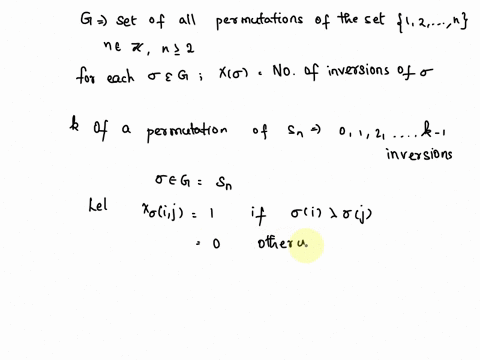 G ⇒ set of all permutations of the set {1,2,...,n}
n ∈ Z, n ≥ 2
for each σ ∈ G ; X(σ) = No. of inversions of σ
k of a permutation of Sn ⇒ 0, 1, 2, .... k-1
inversions
σ ∈ G = Sn
Let Xσ(i,j) = 1 if σ(i) > σ(j)
= 0 other